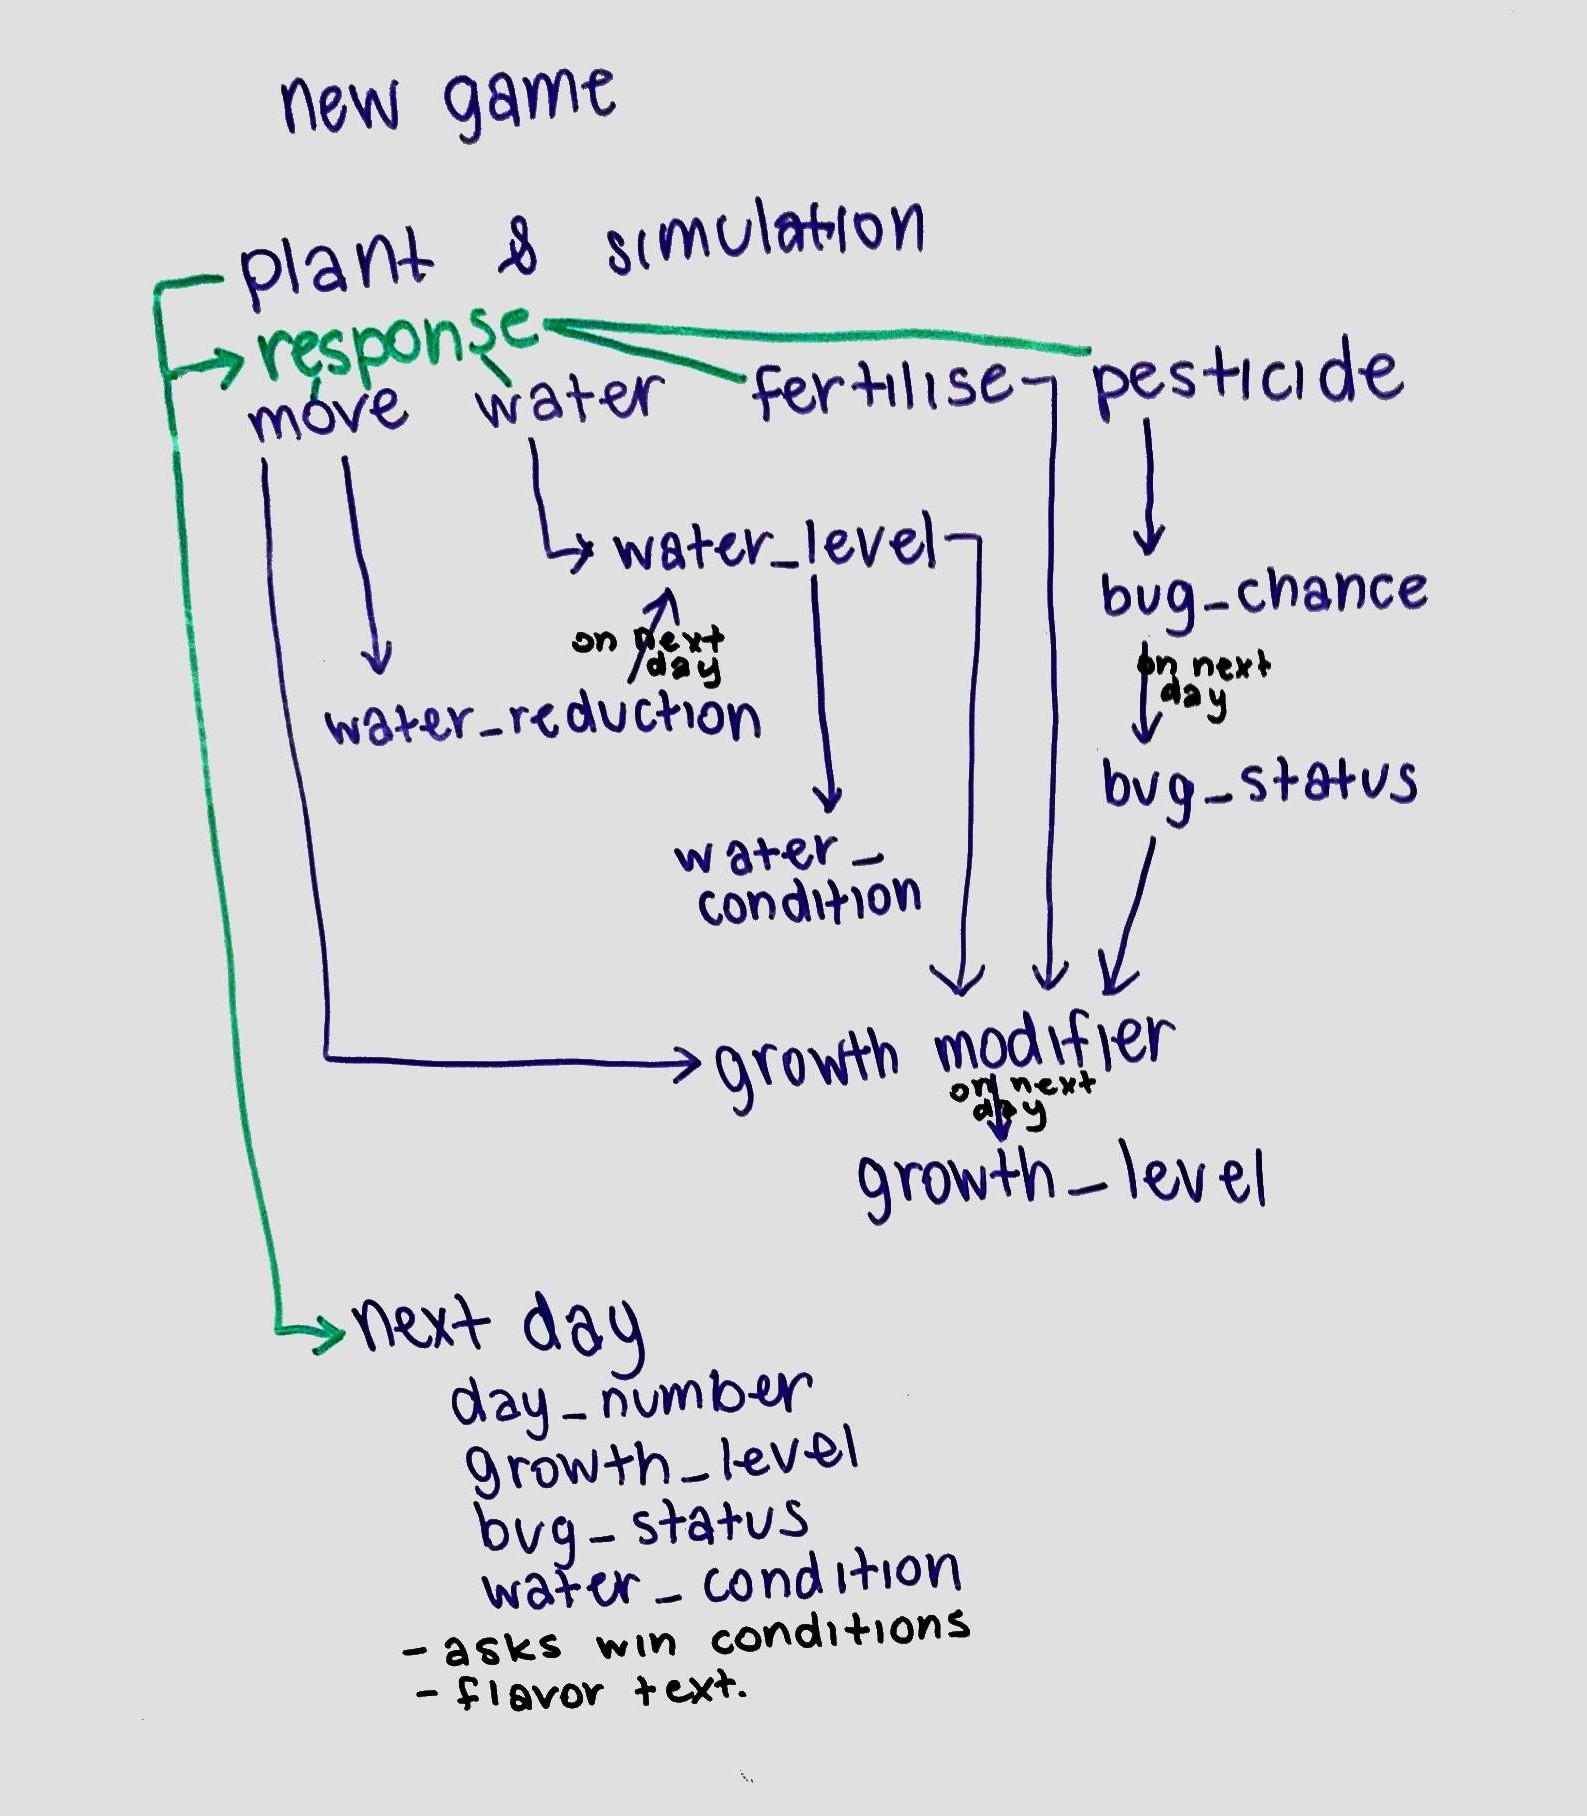 new game
plant & simulation
response
move water fertilise pesticide
water_level
bug_chance
on next
day
on next
day
water_reduction
bug_status
water_
condition
growth modifier
on next
day
growth_level
next day
day_number
growth_level
bug_status
water_condition
- asks win conditions
- flavor text.